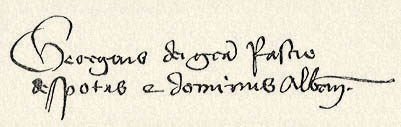 Georgius dei gra Rascie
despotus e dominus Alban.